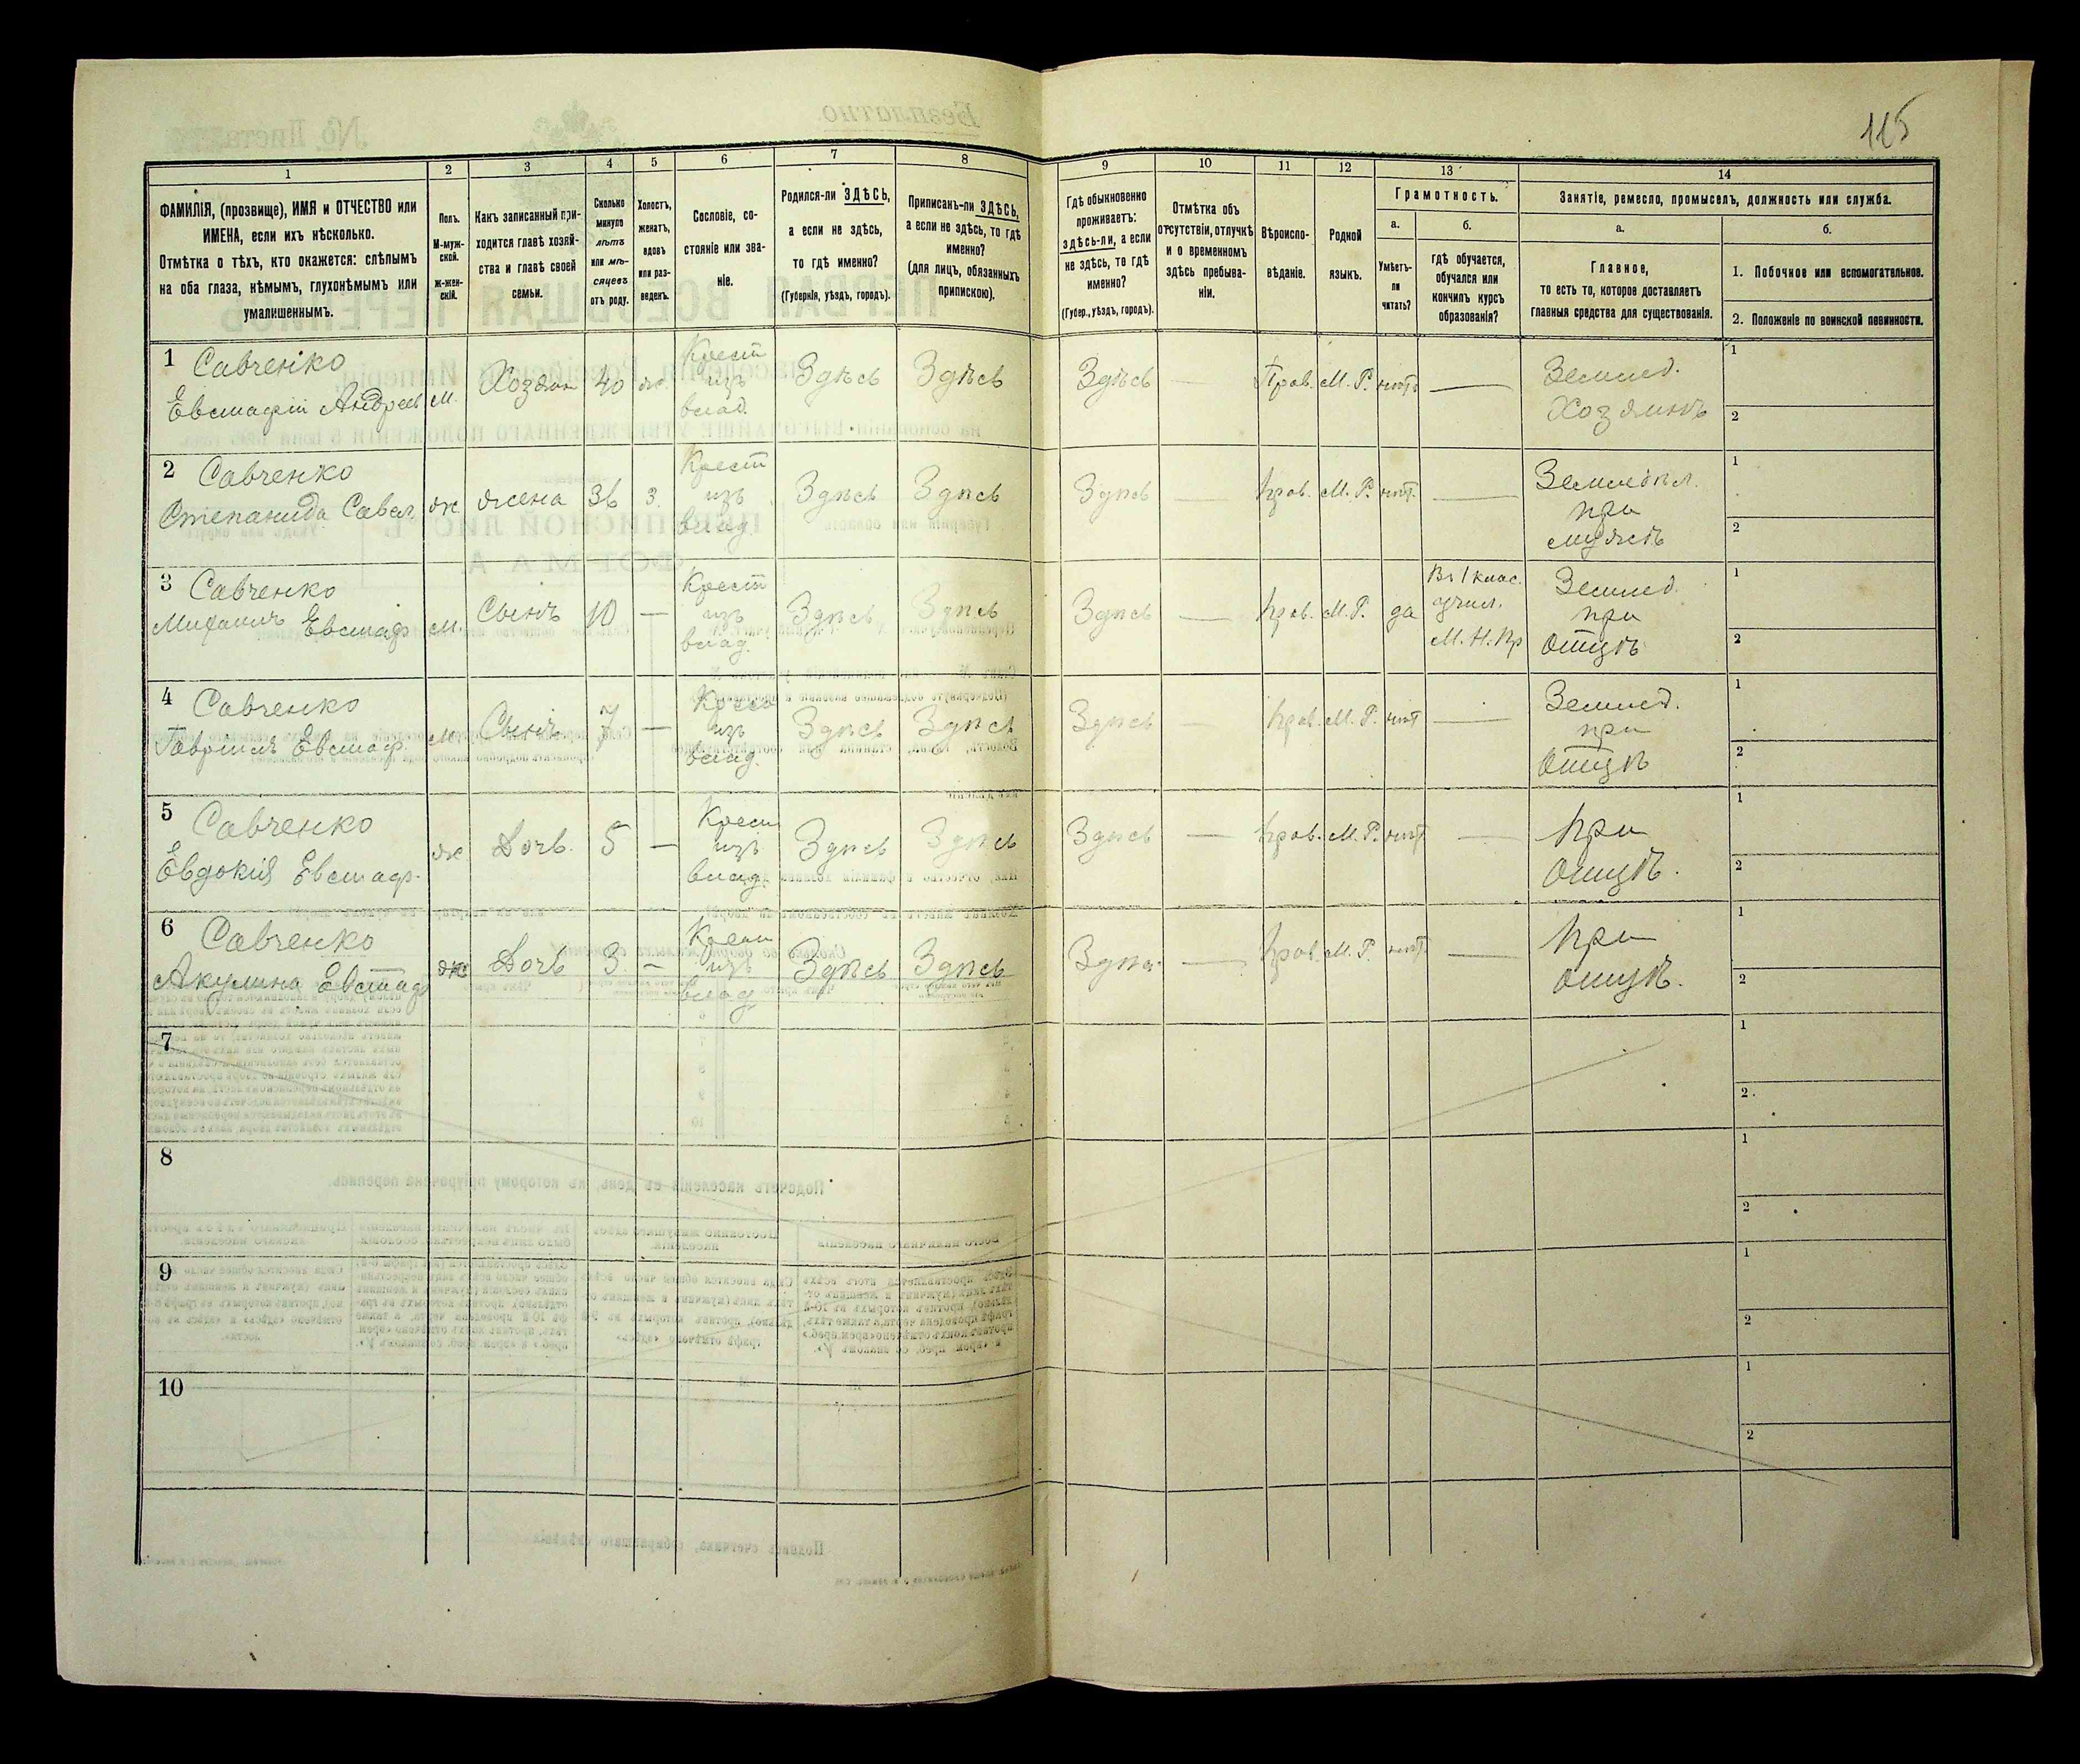 115
1
2
3
4
5
6
7
8
9
10
11
12
13
14
ФАМИЛІЯ, (прозвище), ИМЯ и ОТЧЕСТВО или
ИМЕНА, если ихъ нѣсколько.
Отмѣтка о тѣхъ, кто окажется: слѣпымъ
на оба глаза, нѣмымъ, глухонѣмымъ или
умалишеннымъ.
Полъ.
М-муж-
ской.
Ж-жен-
скій.
Какъ записанный при-
ходится главѣ хозяй-
ства и главѣ своей
семьи.
Сколько
минуло
лѣтъ
или мѣ-
сяцевъ
отъ роду.
Холостъ,
женатъ,
вдовъ
или раз-
веденъ.
Сословіе, со-
стояніе или зва-
ніе.
Родился-ли ЗДѢСЬ,
а если не здѣсь,
то гдѣ именно?
(Губернія, уѣздъ, городъ).
Приписанъ-ли ЗДѢСЬ,
а если не здѣсь, то гдѣ
именно?
(для лицъ, обязанныхъ
припискою).
Гдѣ обыкновенно
проживаетъ:
здѣсь-ли, а если
не здѣсь, то гдѣ
именно?
(Губер., уѣздъ, городъ).
Отмѣтка объ
отсутствіи, отлучкѣ
и о временномъ
здѣсь пребыва-
ніи.
Вѣроиспо-
вѣданіе.
Родной
языкъ.
Грамотность.
а.
Умѣетъ-
ли
читать?
б.
гдѣ обучается,
обучался или
кончилъ курсъ
образованія?
Занятіе, ремесло, промыселъ, должность или служба.
а.
Главное,
то есть то, которое доставляетъ
главныя средства для существованія.
б.
1. Побочное или вспомогательное.
2. Положеніе по воинской повинности.
1 Савченко
Евстафій Андреев м. Хозяин 40 ж. Крест из влад. Здѣсь Здѣсь Здѣсь — Прав. М. Р. нѣтъ — Землед. Хозяинъ
1
2
2 Савченко
Степанида Савел. ж жена 36 з. Крест из влад. Здѣсь Здѣсь Здѣсь — Прав. М. Р. нѣт. — Земледѣл. при мужѣ
1
2
3 Савченко
Михаилъ Евстаф м. Сынъ 10 — Крест из влад. Здѣсь Здѣсь Здѣсь — Прав. М. Р. да Въ 1 клас. учил. М. Н. Пр Землед. при отцѣ
1
2
4 Савченко
Гавріилъ Евстаф. м. Сынъ 7 — Крест из влад. Здѣсь Здѣсь Здѣсь — Прав. М. Р. нѣт — Землед. при отцѣ
1
2
5 Савченко
Евдокія Евстаф. ж Дочь. 5 — Крест из влад. Здѣсь Здѣсь Здѣсь — Прав. М. Р. нѣт — При отцѣ.
1
2
6 Савченко
Акулина Евстаф ж Дочь 3 — Крест из влад Здѣсь Здѣсь Здѣсь — Прав. М. Р. нѣт — При отцѣ.
1
2
7
1
2
8
1
2
9
1
2
10
1
2